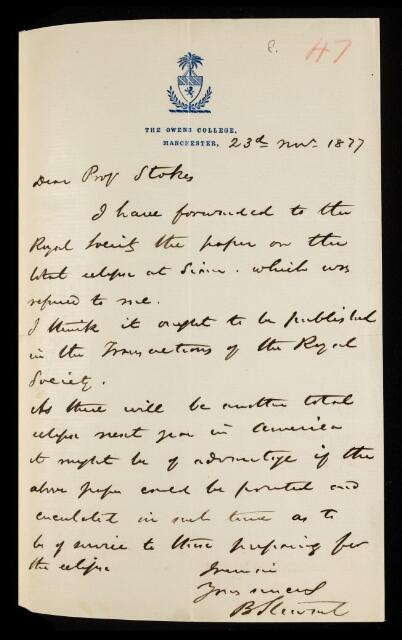 R.
47
THE OWENS COLLEGE,
MANCHESTER, 23d Novr. 1877
Dear Prof Stokes
I have forwarded to the
Royal Society the paper on the
total eclipse at Siam. which was
referred to me.
I think it ought to be published
in the Transactions of the Royal
Society.
As there will be another total
eclipse next year in America
it might be of advantage if the
above paper could be printed and
circulated in such time as to
be of service to those preparing for
the eclipse
I remain
Yours sincerely
B Stewart